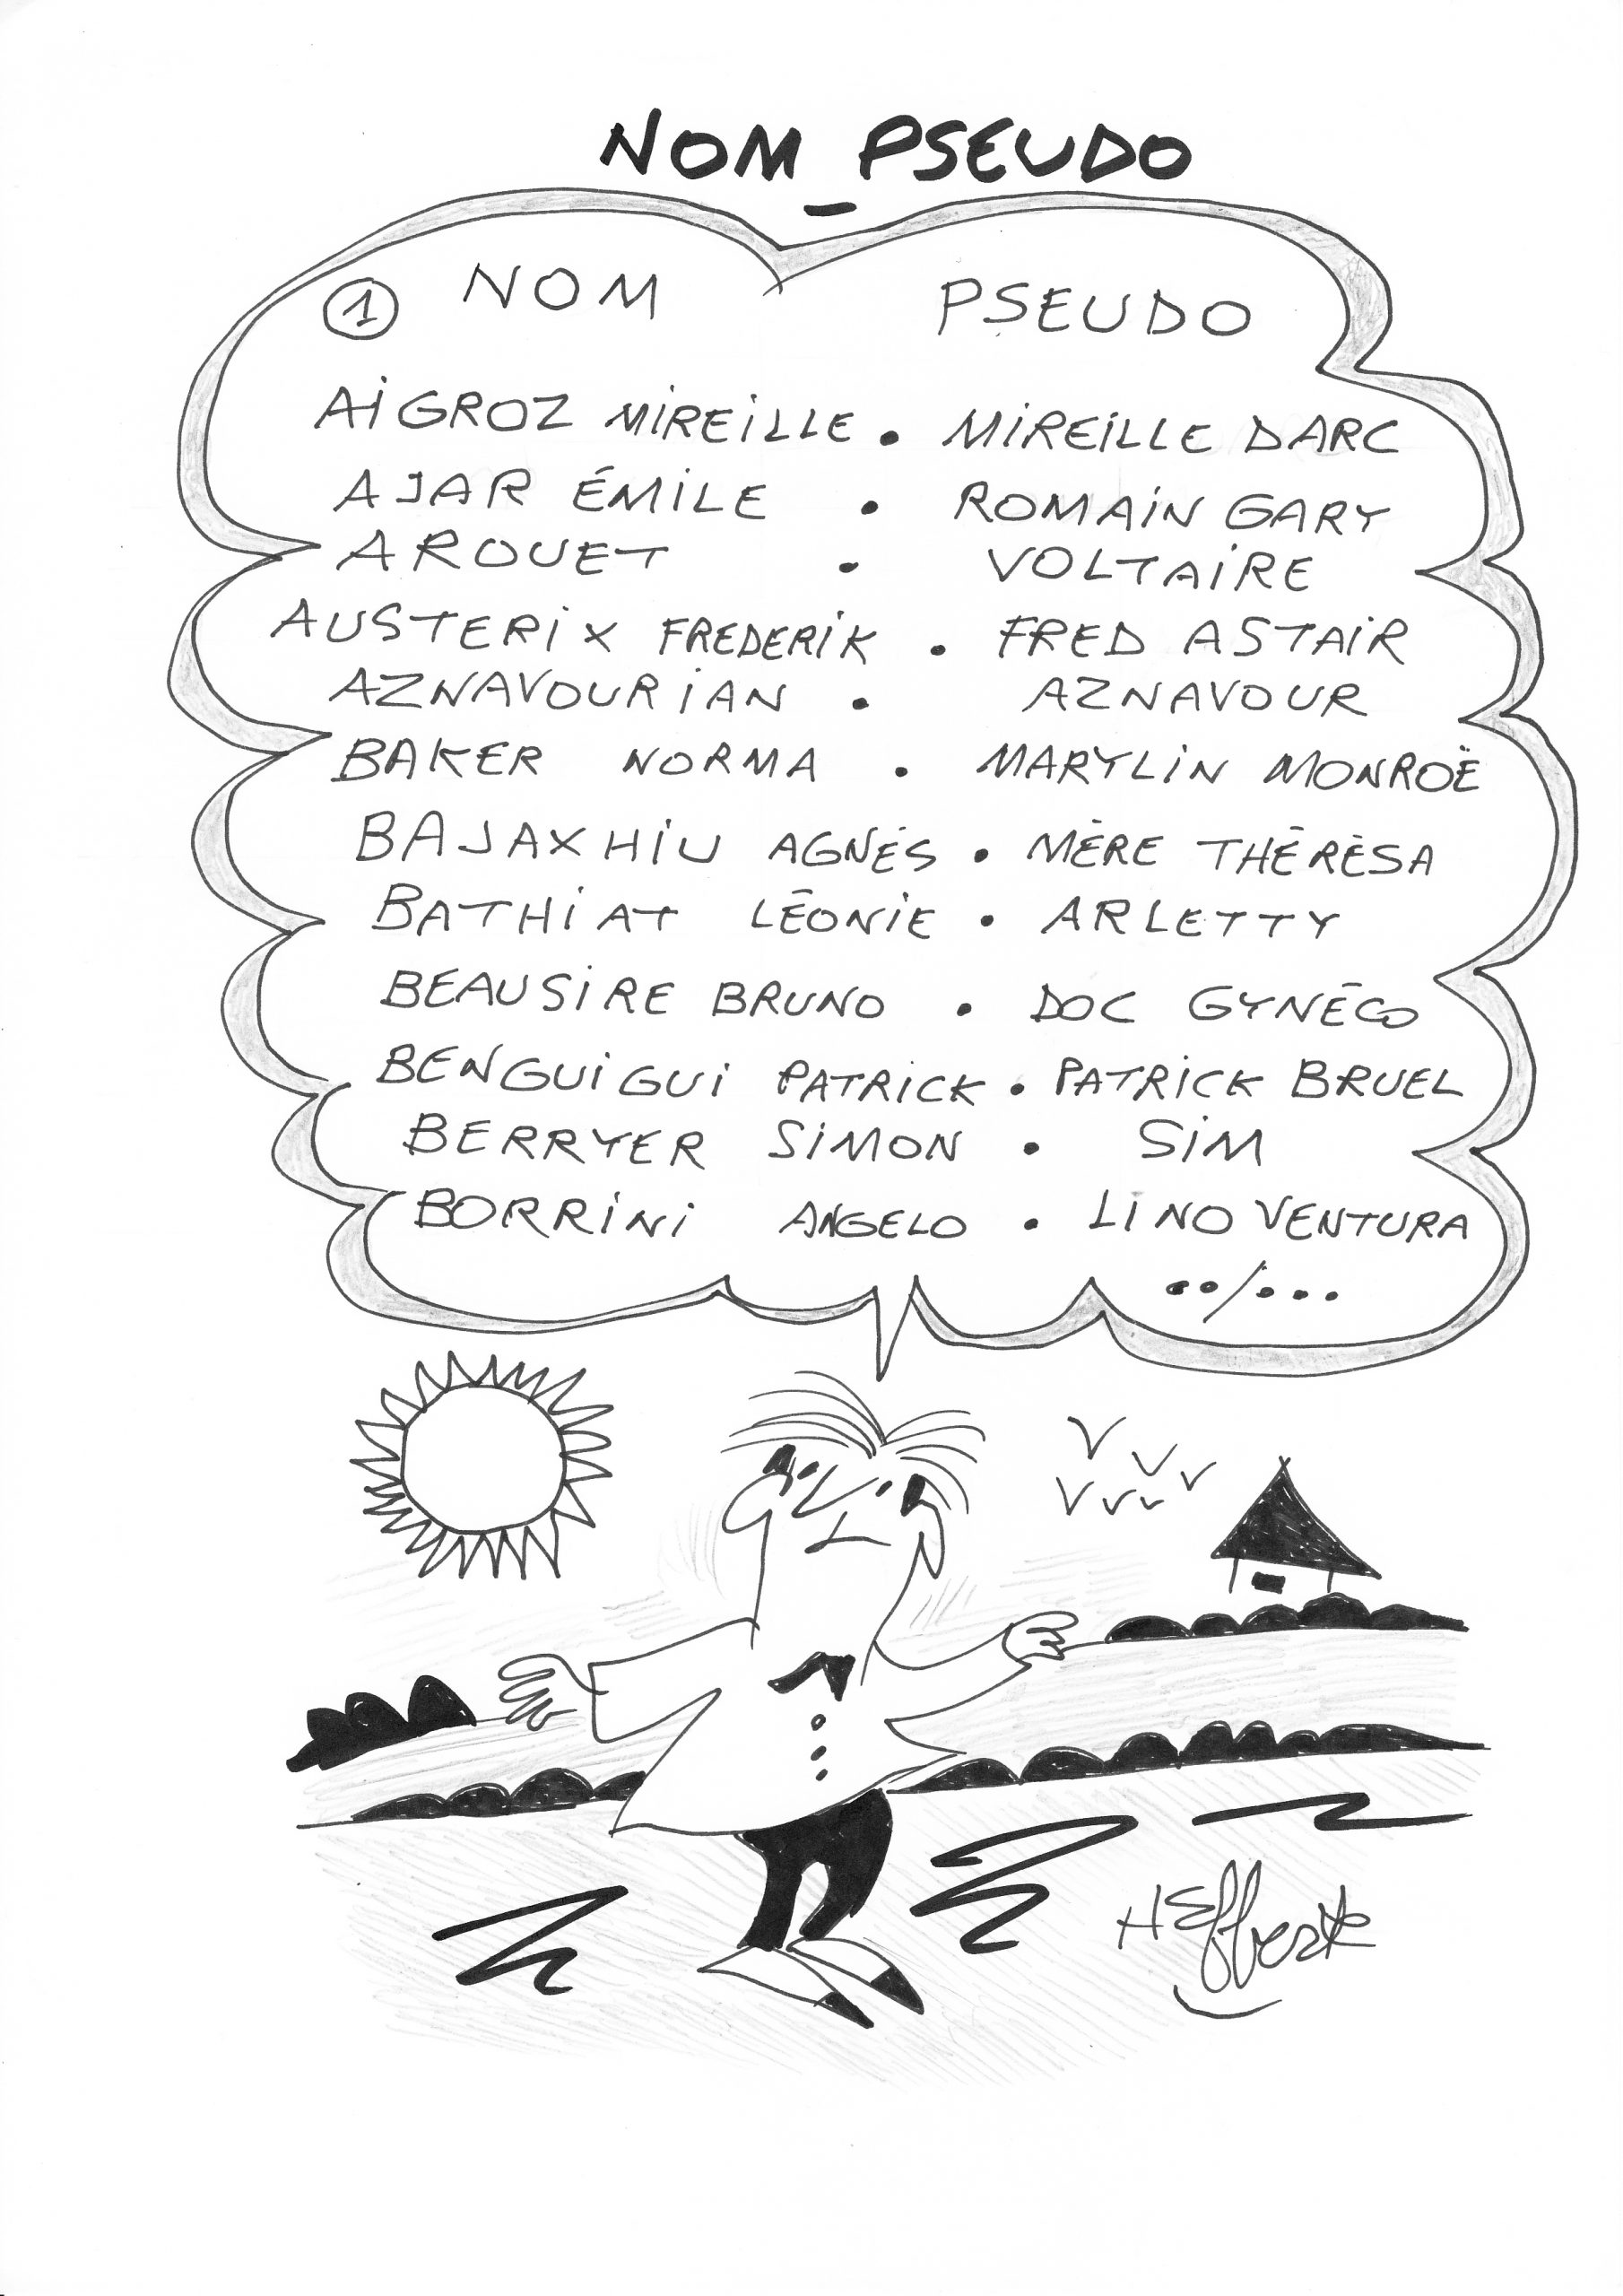 NOM_PSEUDO
① NOM PSEUDO
AIGROZ MIREILLE . MIREILLE DARC
AJAR ÉMILE . ROMAIN GARY
AROUET . VOLTAIRE
AUSTERIX FREDERIK . FRED ASTAIR
AZNAVOURIAN . AZNAVOUR
BAKER NORMA . MARYLIN MONROË
BAJAXHIU AGNÉS . MÈRE THÉRÈSA
BATHIAT LÉONIE . ARLETTY
BEAUSIRE BRUNO . DOC GYNÉCO
BENGUIGUI PATRICK . PATRICK BRUEL
BERRYER SIMON . SIM
BORRINI ANGELO . LINO VENTURA
../...